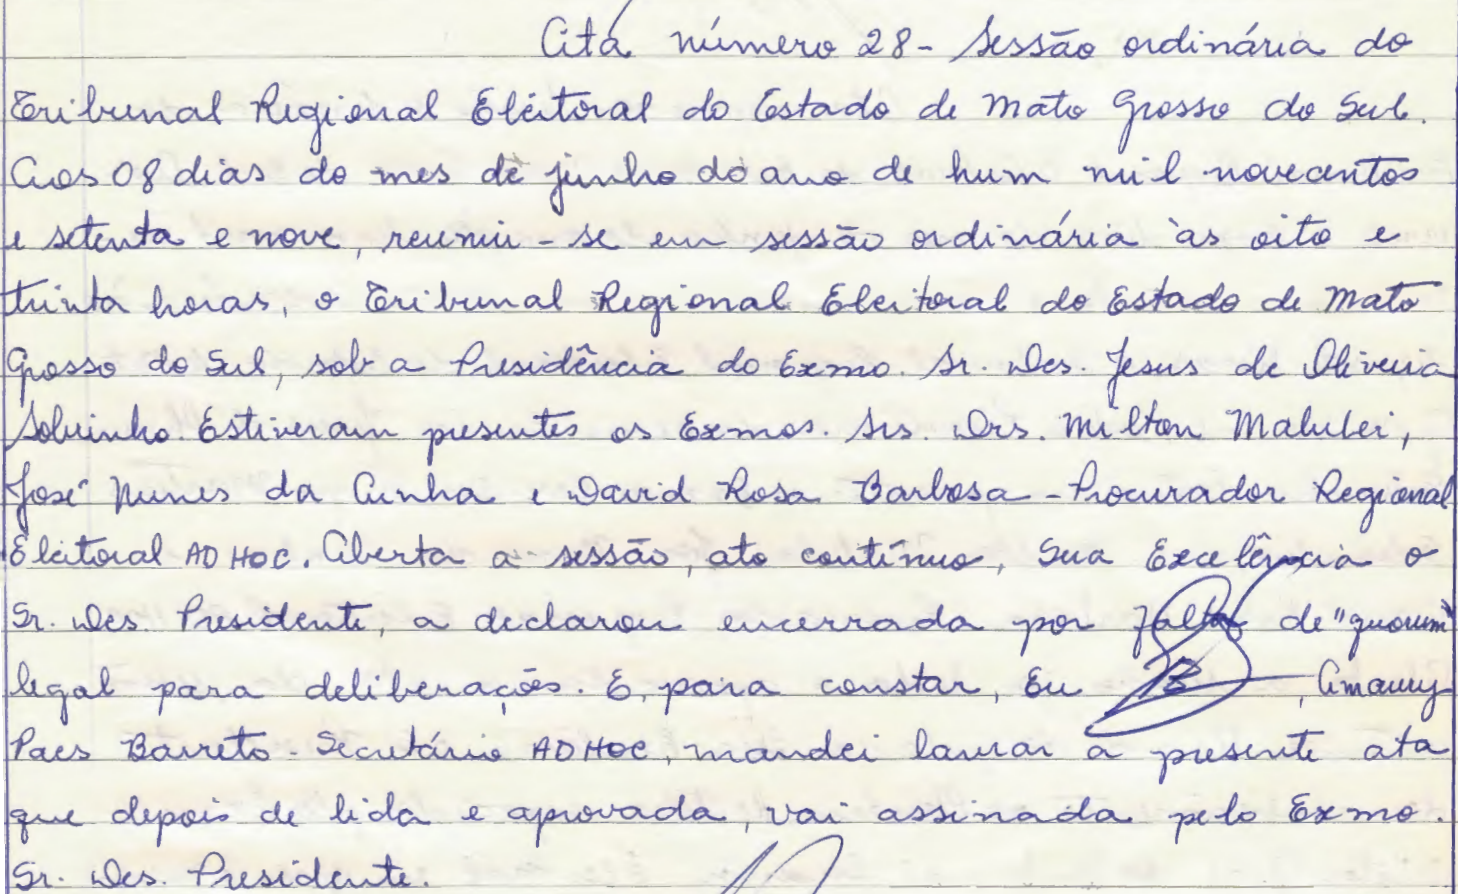 Ata número 28 - Sessão ordinária do
Tribunal Regional Eleitoral do Estado de Mato Grosso do Sul.
Aos 08 dias do mes de junho do ano de hum mil novecentos
e setenta e nove, reuniu-se em sessão ordinária às oito e
trinta horas, o Tribunal Regional Eleitoral do Estado de Mato
Grosso do Sul, sob a Presidência do Exmo. Sr. Des. Jesus de Oliveira
Sobrinho. Estiveram presentes os Exmos. Srs. Drs. Milton Malulei,
José Nunes da Cunha e David Rosa Barbosa - Procurador Regional
Eleitoral AD HOC. Aberta a sessão, ato contínuo, Sua Excelência o
Sr. Des. Presidente, a declarou encerrada por falta de "quorum"
legal para deliberações. E, para constar, Eu , Amaury
Paes Barreto Secretário AD HOC, mandei lavrar a presente ata
que depois de lida e aprovada, vai assinada pelo Exmo.
Sr. Des. Presidente.